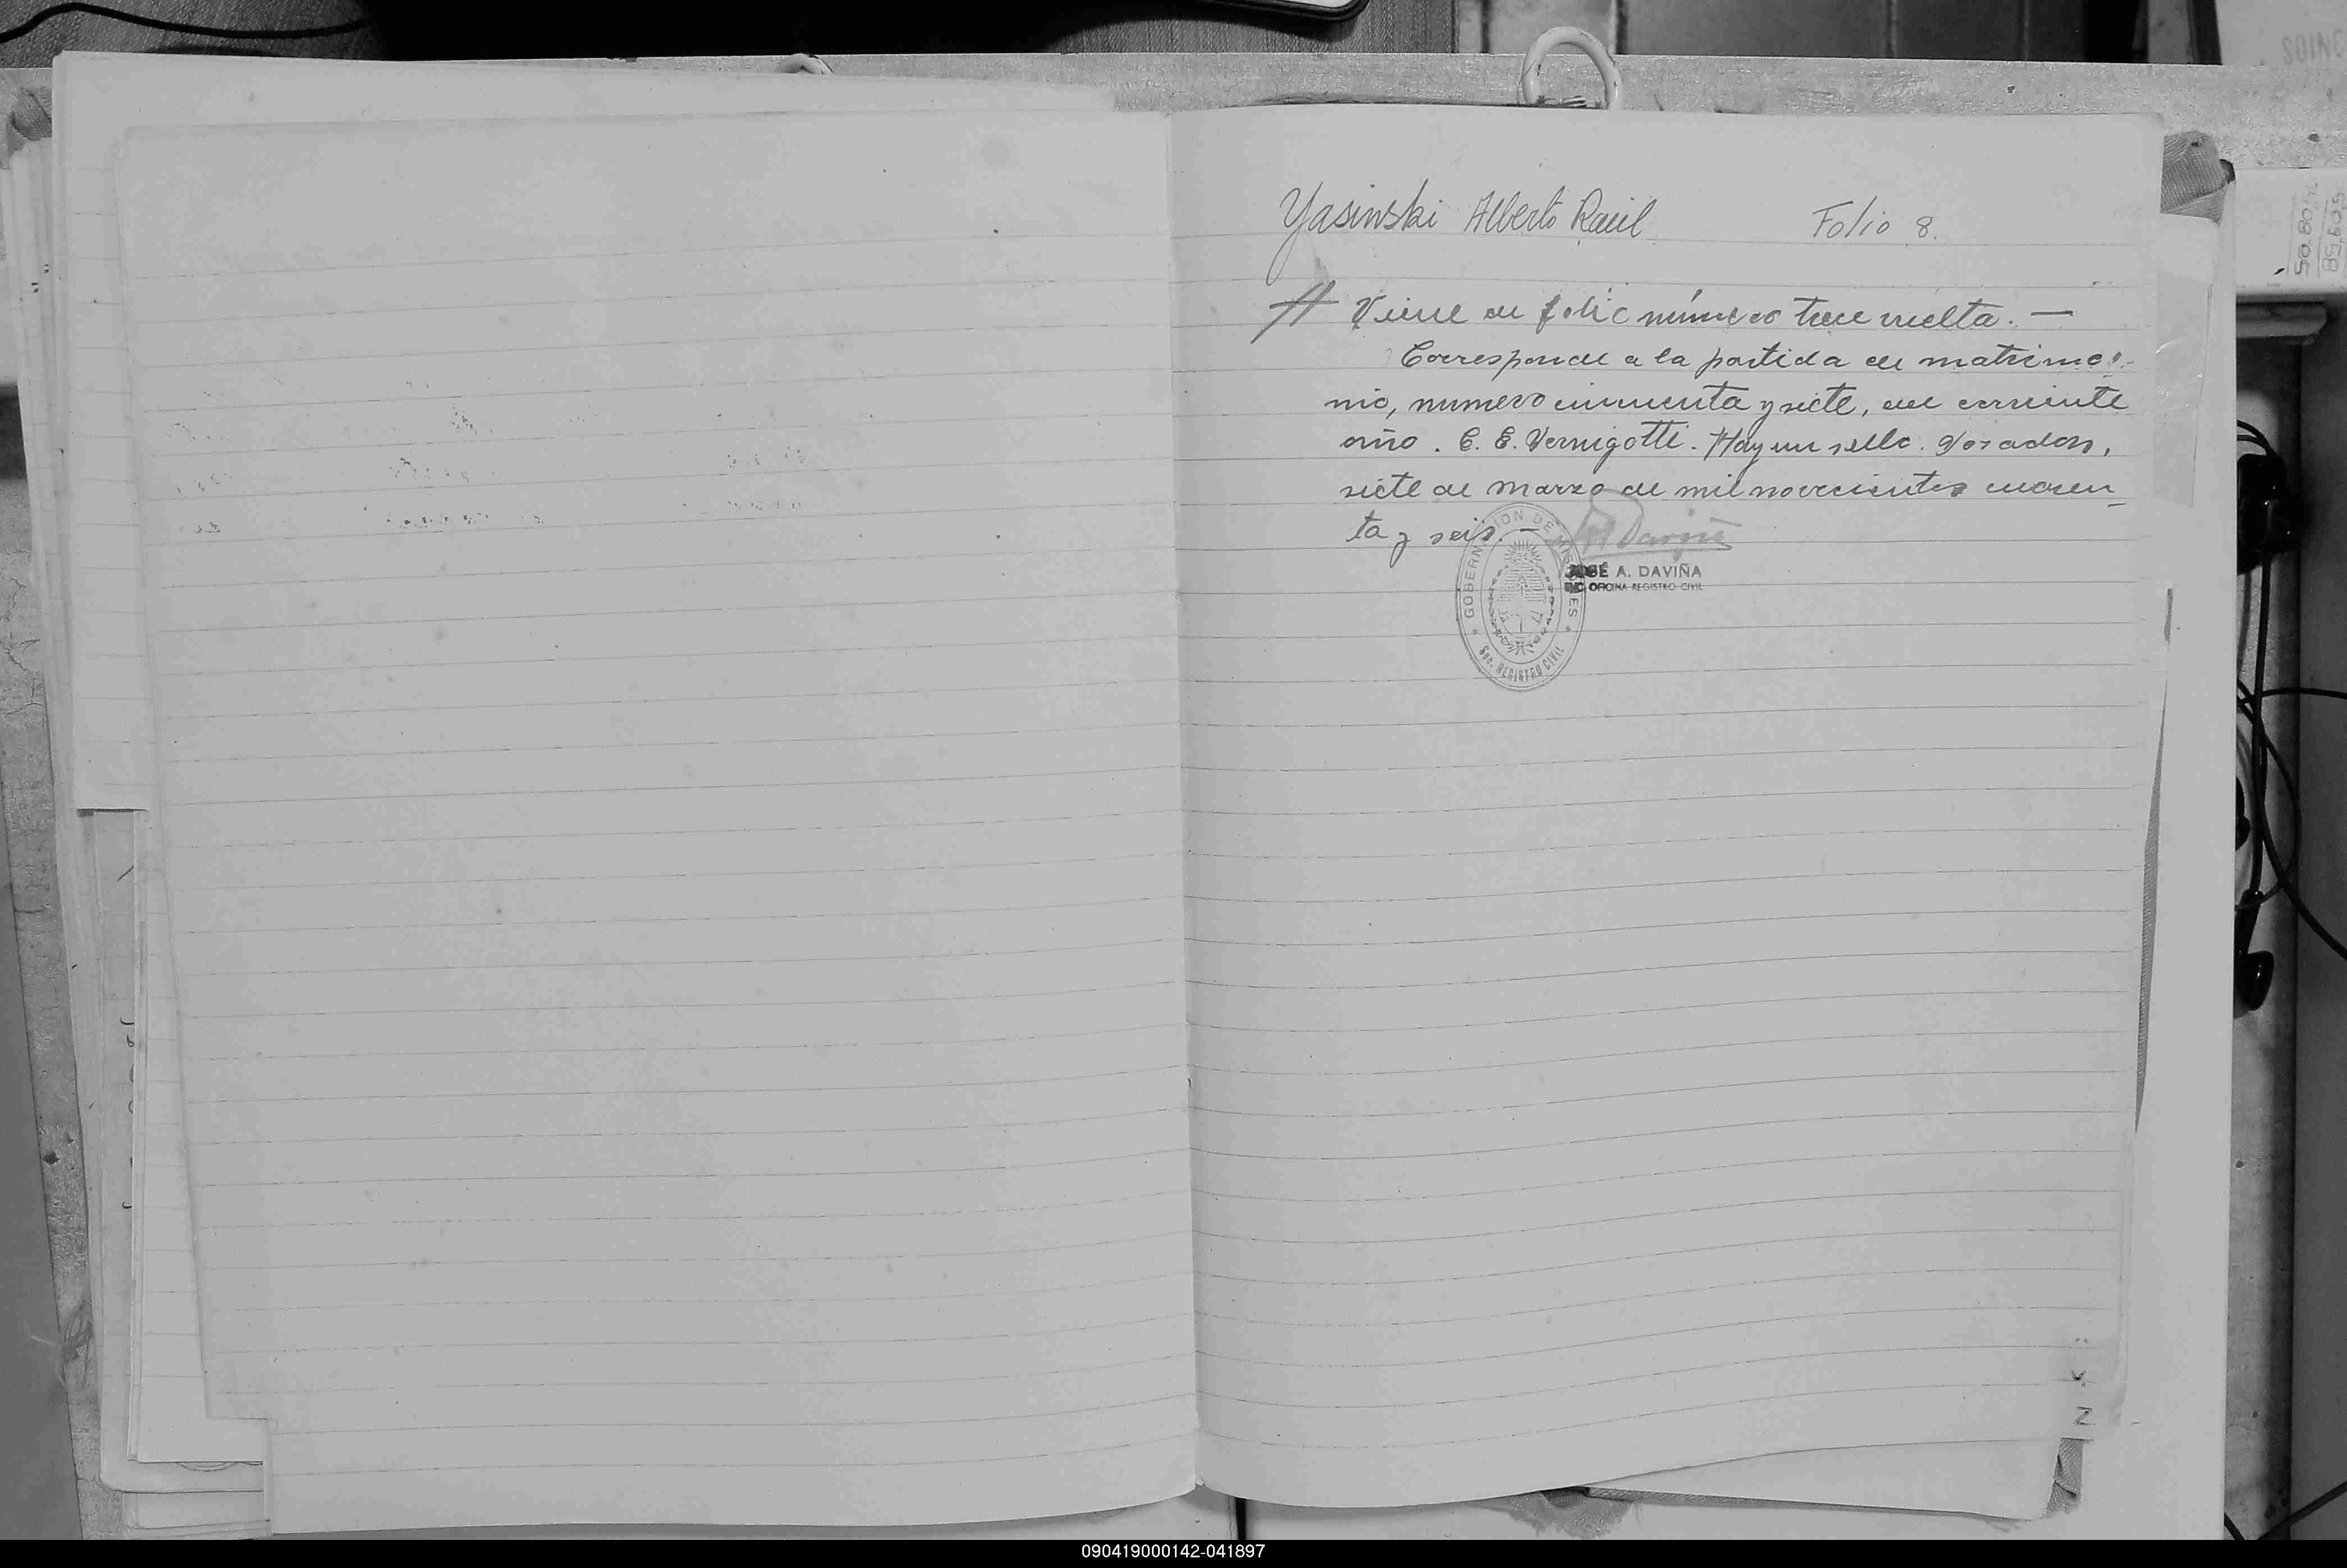 Yasinski Alberto Raúl Folio 8.
Viene de folio número trece vuelta. —
Corresponde a la partida de matrimo
nio, numero cincuenta y siete, del corriente
año. C. E. Vernigotti. Hay un sello. Posadas,
siete de marzo de mil novecientos cuaren
ta y seis. —
GOBERNACION DE MISIONES
Sec. REGISTRO CIVIL
JOSÉ A. DAVIÑA
ENC OFICINA REGISTRO CIVIL
090419000142-041897